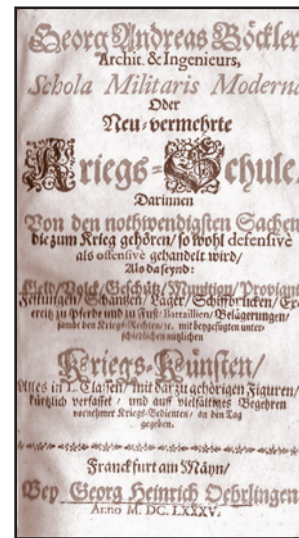 Georg Andreas Böckler
Archit. & Ingenieurs,
Schola Militaris Moderna
Oder
Neu-vermehrte
Kriegs-Schule/
Darinnen
Von den nothwendigsten Sachen
die zum Krieg gehören/ so wohl defensivè
als offensivè gehandelt wird/
Als da seynd:
Geld/Volck/Geschütz/Munition/Proviant
Festungen/Schantzen/Läger/Schiffbrücken/Ex-
ercitz zu Pferde und zu Fuß/Battaillien/Belägerungen/
sambt den Kriegs-Rechten/ꝛc. mit beygefügten unter-
schiedlichen nützlichen
Kriegs-Künsten/
Alles in Classen/mit darzu gehörigen Figuren/
kürtzlich verfasset/ und auff vielfältiges Begehren
vornehmer Kriegs-Bedienten/ an den Tag
gegeben.
Franckfurt am Mäyn/
Bey Georg Heinrich Oehrlingen
Anno M. DC. LXXXV.